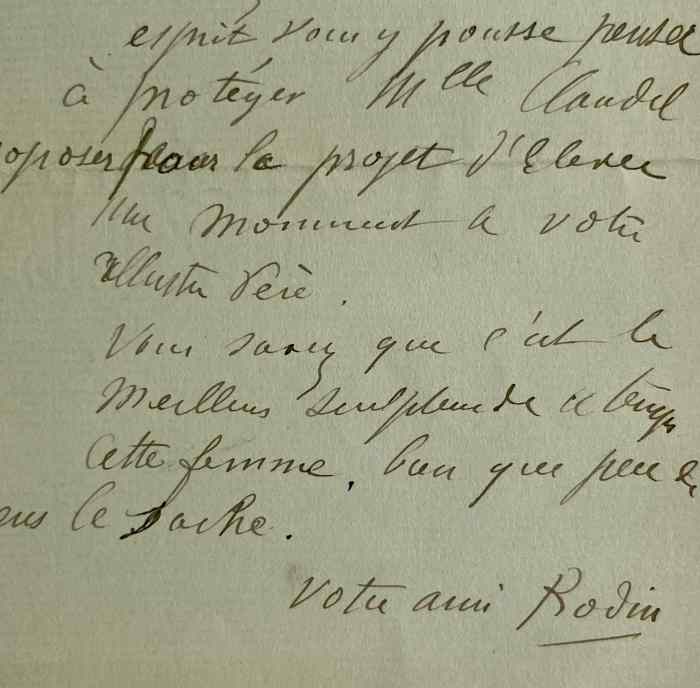 esprit vous y pousse penser
à protéger Mlle Claudel
oposer pour le projet d'Elever
un monument a votre
illustre Père.
Vous savez que c'est le
meilleur sculpteur de ce temps
cette femme, bien que peu de
ens le sache.
votre ami Rodin